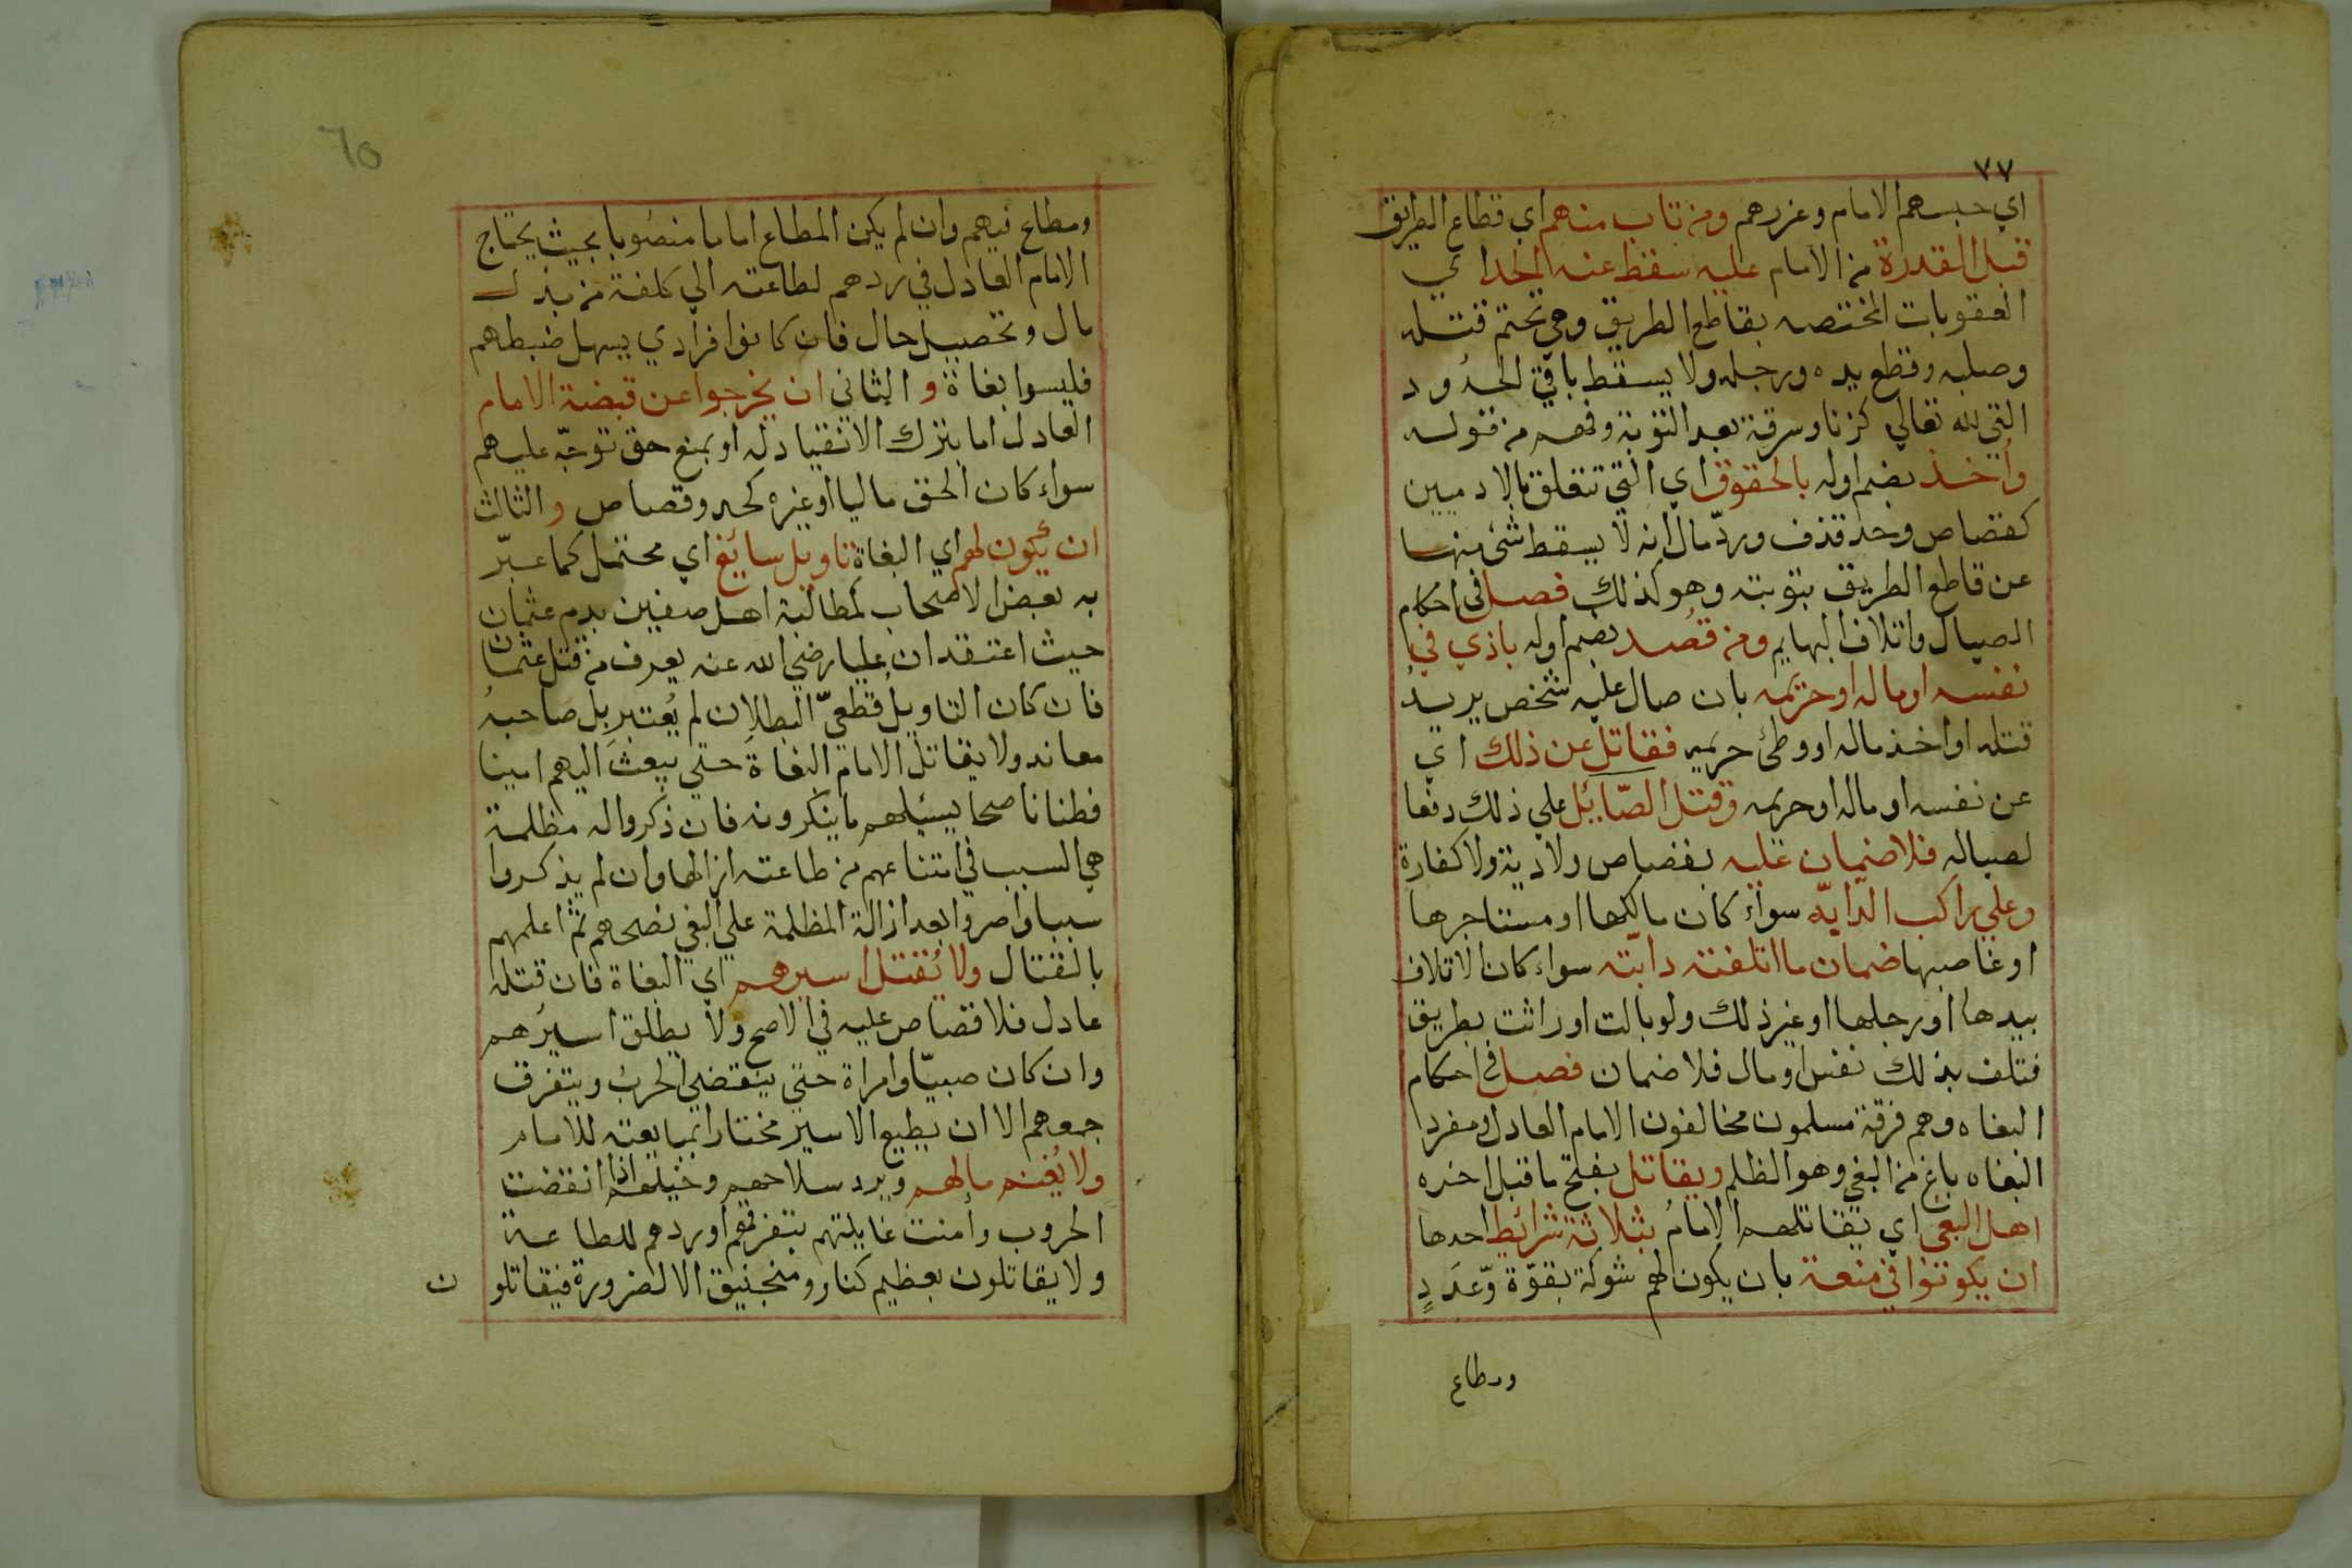 ٧٧
اي حبسهم الامام وعزرهم ومن تاب منهم اي قطاع الطريق
قبل القدرة من الامام عليه سقط عنه الحد اي
العقوبات المختصه بقاطع الطريق وهي تحتم قتله
وصلبه وقطع يده ورجله ولا يسقط باقي الحدود
التي لله تعالي كزنا وسرقة بعد التوبة وفهم من قوله
واُخذ بضم اوله بالحقوق اي التي تتعلق بالادميين
كقصاص وحد قذف وردّ مال انه لا يسقط شئ منها
عن قاطع الطريق بتوبته وهو كذلك فصل في احكام
الصيال واتلاف البهايم ومن قُصد بضم اوله باذي في
نفسه او ماله او حريمه بان صال عليه شخص يريد
قتله او اخذ ماله او وطئ حريمه فقاتل عن ذلك اي
عن نفسه او ماله او حريمه وقتل الصّايل علي ذلك دفعا
لصياله فلا ضمان عليه بقصاص ولا دية ولا كفارة
وعلي راكب الدابّه سواء كان مالكها او مستاجرها
او غاصبها ضمان ما اتلفته دابّته سواء كان الاتلاف
بيدها او رجلها او غير ذلك ولو بالت او راثت بطريق
فتلف بذلك نفس او مال فلا ضمان فصل في احكام
البغاه وهم فرقة مسلمون مخالفون الامام العادل ومفردا
البغاه باغ من البغي وهو الظلم ويقاتل بفتح ما قبل اخره
اهل البغي اي يقاتلهم الامامُ بثلاثة شرائط احدها
ان يكونوا في منعة بان يكون لهم شوكة بقوّة وّعَدَدٍ
ومطاع
65
ومطاع فيهم وان لم يكن المطاع اماما منصُوبا بحيث يحتاج
الامام العادل في ردهم لطاعته الي كلفة من بذل
مال وتحصيل حال فان كانوا افرادي يسهل ضبطهم
فليسوا بغاة و الثاني ان يخرجوا عن قبضة الامام
العادل اما بترك الانقياد له او بمنع حق توجّه عليهم
سواء كان الحق ماليا او غيره كحد وقصاص و الثالث
ان يكون لهم اي البغاة تاويل سايغ اي محتمل كما عبّر
به بعض الاصحاب لمطالبة اهل صفين بدم عثمان
حيث اعتقد ان عليا رضي الله عنه يعرف من قتل عثمان
فان كان التاويل قطعيّ البطلان لم يُعتبر بل صاحبه
معاند ولا يقاتل الامام البغاة حتي يبعث اليهم امينا
فطنا ناصحا يسئلهم ما ينكرونه فان ذكروا له مظلمة
هي السبب في امتناعهم من طاعته ازالها وان لم يذكروا
سببا واصروا بعد ازالة المظلمة علي البغي نصحهم ثم اعلمهم
بالقتال ولا يُقتل اسيرهم اي البغاة فان قتله
عادل فلا قصاص عليه في الاصح ولا يطلق اسيرُهم
وان كان صبيّا وامراة حتي ينقضي الحرب ويتفرق
جمعهم الا ان يطيع الاسير مختارا بمبايعته للامام
ولا يُغنم مالهم ويرد سلاحهم وخيلهم اذا انقضت
الحروب وأمنت غايلتهم بتفرقهم او ردهم للطاعة
ولا يقاتلون بعظيم كنار ومنجنيق الا لضرورة فيقاتلون